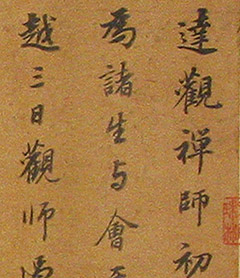 達觀禪師初
為諸生与會
越三日觀師